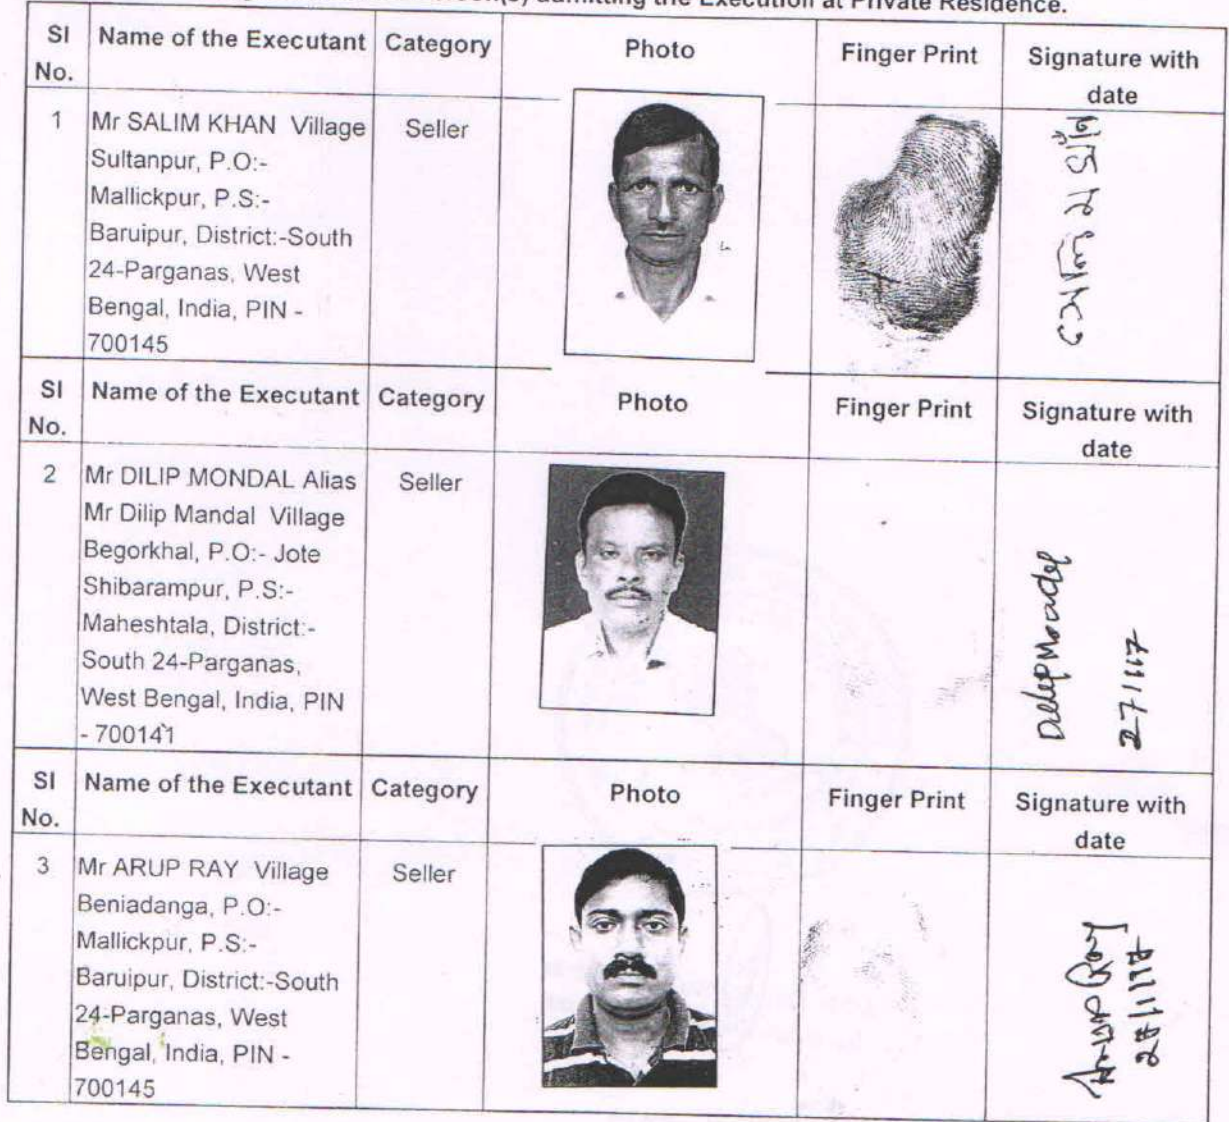 admitting the Execution at Private Residence.
Sl No. Name of the Executant Category Photo Finger Print Signature with date
1 Mr SALIM KHAN Village Seller
Sultanpur, P.O:-
Mallickpur, P.S:-
Baruipur, District:-South
24-Parganas, West
Bengal, India, PIN -
700145
Sl No. Name of the Executant Category Photo Finger Print Signature with date
2 Mr DILIP MONDAL Alias Seller
Mr Dilip Mandal Village
Begorkhal, P.O:- Jote
Shibarampur, P.S:-
Maheshtala, District:-
South 24-Parganas,
West Bengal, India, PIN
- 700141
Dilip Mondal
27/1/17
Sl No. Name of the Executant Category Photo Finger Print Signature with date
3 Mr ARUP RAY Village Seller
Beniadanga, P.O:-
Mallickpur, P.S:-
Baruipur, District:-South
24-Parganas, West
Bengal, India, PIN -
700145
Arup Roy
27/1/17